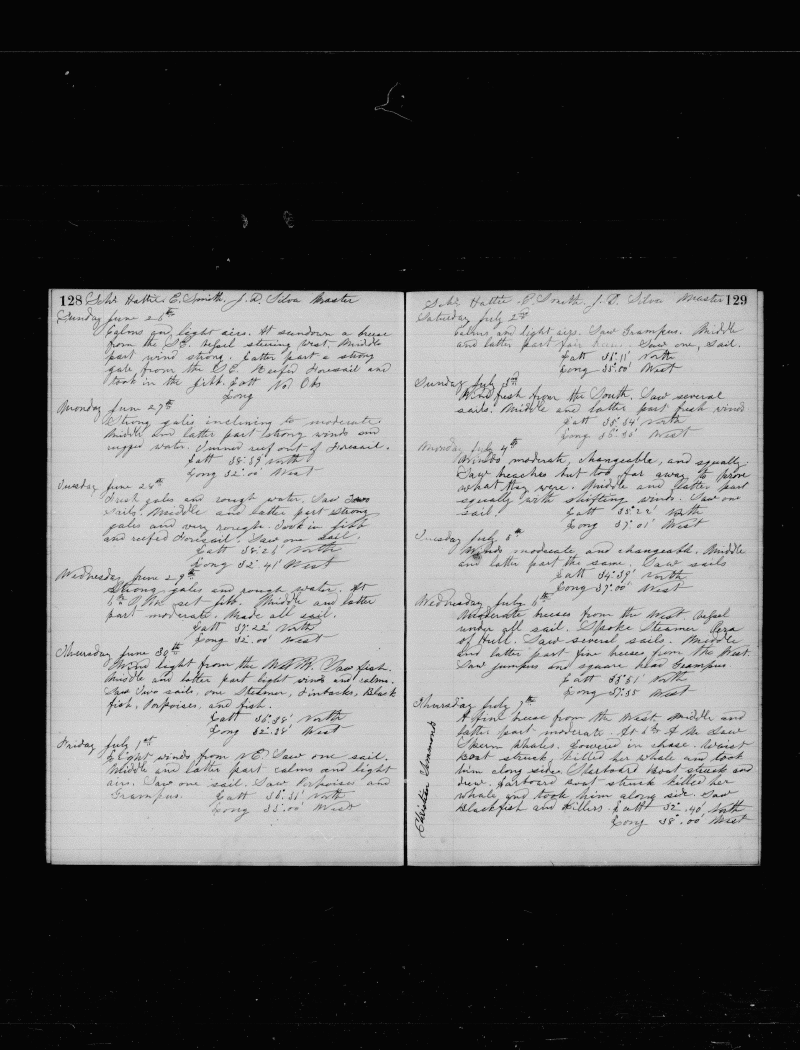 128 Schr Hattie E. Smith, J. D. Silva Master
Sunday June 26th
Calms and light airs. At sundown a breeze
from the SE. Vessel steering west. Middle
part wind strong. Latter part a strong
gale from the SE. Reefed Foresail and
took in the jibb. Latt No Obs
Long
Monday June 27th
Strong gales inclining to moderate.
Middle and latter part strong winds and
rugged water. Turned reef out of Foresail.
Latt 38.39' North
Long 32.00' West
Tuesday June 28th
Fresh gales and rough water. Saw two
sails. Middle and latter part strong
gales and very rough. Took in jibb
and reefed Foresail. Saw one sail.
Latt 38.26' North
Long 32.41' West
Wednesday June 29th
Strong gales and rough water. At
P.M. set jibb. Middle and latter
part moderate. Made all sail.
Latt 37.22' North
Long 32.00' West
Thursday June 30th
Wind light from the Saw fish.
Middle and latter part light winds and calms.
Saw two sails, one Steamer, Finbacks, Black
fish, Porpoises, and fish.
Latt 36.38' North
Long 32.28' West
Friday July 1st
Light winds from NE. Saw one sail.
Middle and latter part calms and light
airs. Saw one sail. Saw Porpoises and
Grampus. Latt 36.31' North
Long 33.00' West
Schr Hattie E. Smith, J. D. Silva Master 129
Saturday July 2nd
Calms, and light airs. Saw Grampus. Middle
and latter part fair Saw one, sail.
Latt 36.11' North
Long 35.00' West
Sunday July 3rd
Wind fresh from the South. Saw several
sails. Middle and latter part fresh winds
Latt 35.34' North
Long 36.30' West
Monday July 4th
Winds, moderate, changeable, and squally
Saw breaches but too far away to prove
what they were. Middle and latter part
squally with shifting winds. Saw one
sail. Latt 35.22' North
Long 37.01' West
Tuesday July 5th
Winds moderate and changeable. Middle
and latter part the same. Saw sails
Latt 34.39' North
Long 37.00' West
Wednesday July 6th
Moderate breezes from the West. Vessel
under all sail. Spoke Steamer
of Hull. Saw several sails. Middle
and latter part fine breezes from the West.
Saw jumpers and square head Grampus.
Latt 33.51' North
Long 37.55 West
Thursday July 7th
A fine breeze from the West. Middle and
latter part moderate. At A.M. Saw
Sperm Whales. Lowered in chase. Waist
boat struck, killed her whale and took
him along side. Starboard boat struck and
drew. Larboard boat struck killed her
whale and took him along side. Saw
Blackfish and Killers. Latt 32.40' North
Long 38.00' West
Christian Simmonds